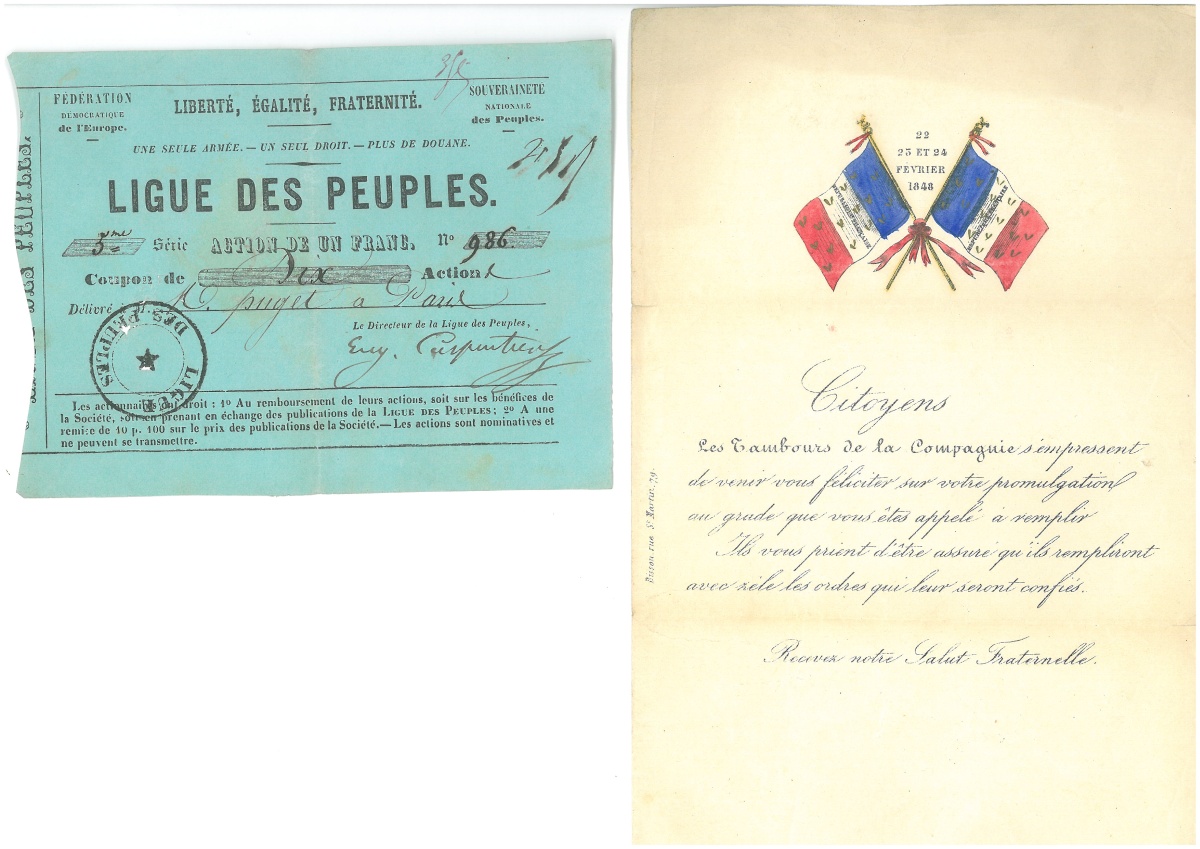 FÉDÉRATION
DÉMOCRATIQUE
de l'Europe.
LIBERTÉ, ÉGALITÉ, FRATERNITÉ.
SOUVERAINETÉ
NATIONALE
des Peuples.
UNE SEULE ARMÉE. — UN SEUL DROIT. — PLUS DE DOUANE.
LIGUE DES PEUPLES.
3me Série ACTION DE UN FRANC. No 986
Coupon de Dix Actions
Délivré à M. puget a Paris
Le Directeur de la Ligue des Peuples,
Eug. Carpentier
LIGUE DES PEUPLES
Les actionnaires ont droit : 1o Au remboursement de leurs actions, soit sur les bénéfices de
la Société, soit en prenant en échange des publications de la LIGUE DES PEUPLES; 2o A une
remise de 10 p. 100 sur le prix des publications de la Société.— Les actions sont nominatives et
ne peuvent se transmettre.
22
23 ET 24
FÉVRIER
1848
RÉPUBLIQUE FRANÇAISE
RÉPUBLIQUE FRANÇAISE
Citoyens
Les Tambours de la Compagnie s'empressent
de venir vous féliciter sur votre promulgation
au grade que vous êtes appelé à remplir
Ils vous prient d'être assuré qu'ils rempliront
avec zèle les ordres qui leur seront confiés.
Recevez notre Salut Fraternelle.
rue St Martin, 79.